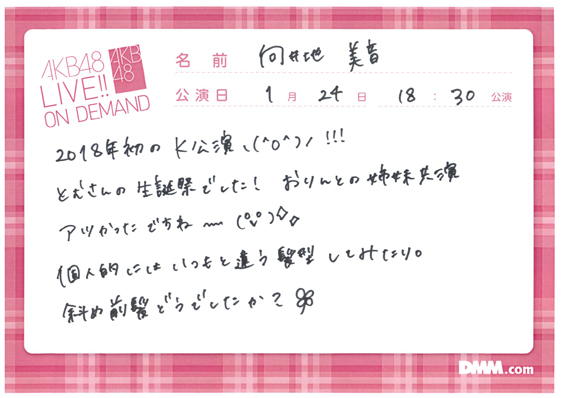 AKB48
LIVE!!
ON DEMAND
AKB
48
名前 向井地 美音
公演日 1月24日 18:30公演
2018年初のK公演ヽ(^o^)ノ!!!
ともさんの生誕祭でした! おりんとの姉妹共演
アツかったですね〜 (°v°)◇◇
個人的にはいつもと違う髪型してみたり。
斜め前髪どうでしたか?
DMM.com